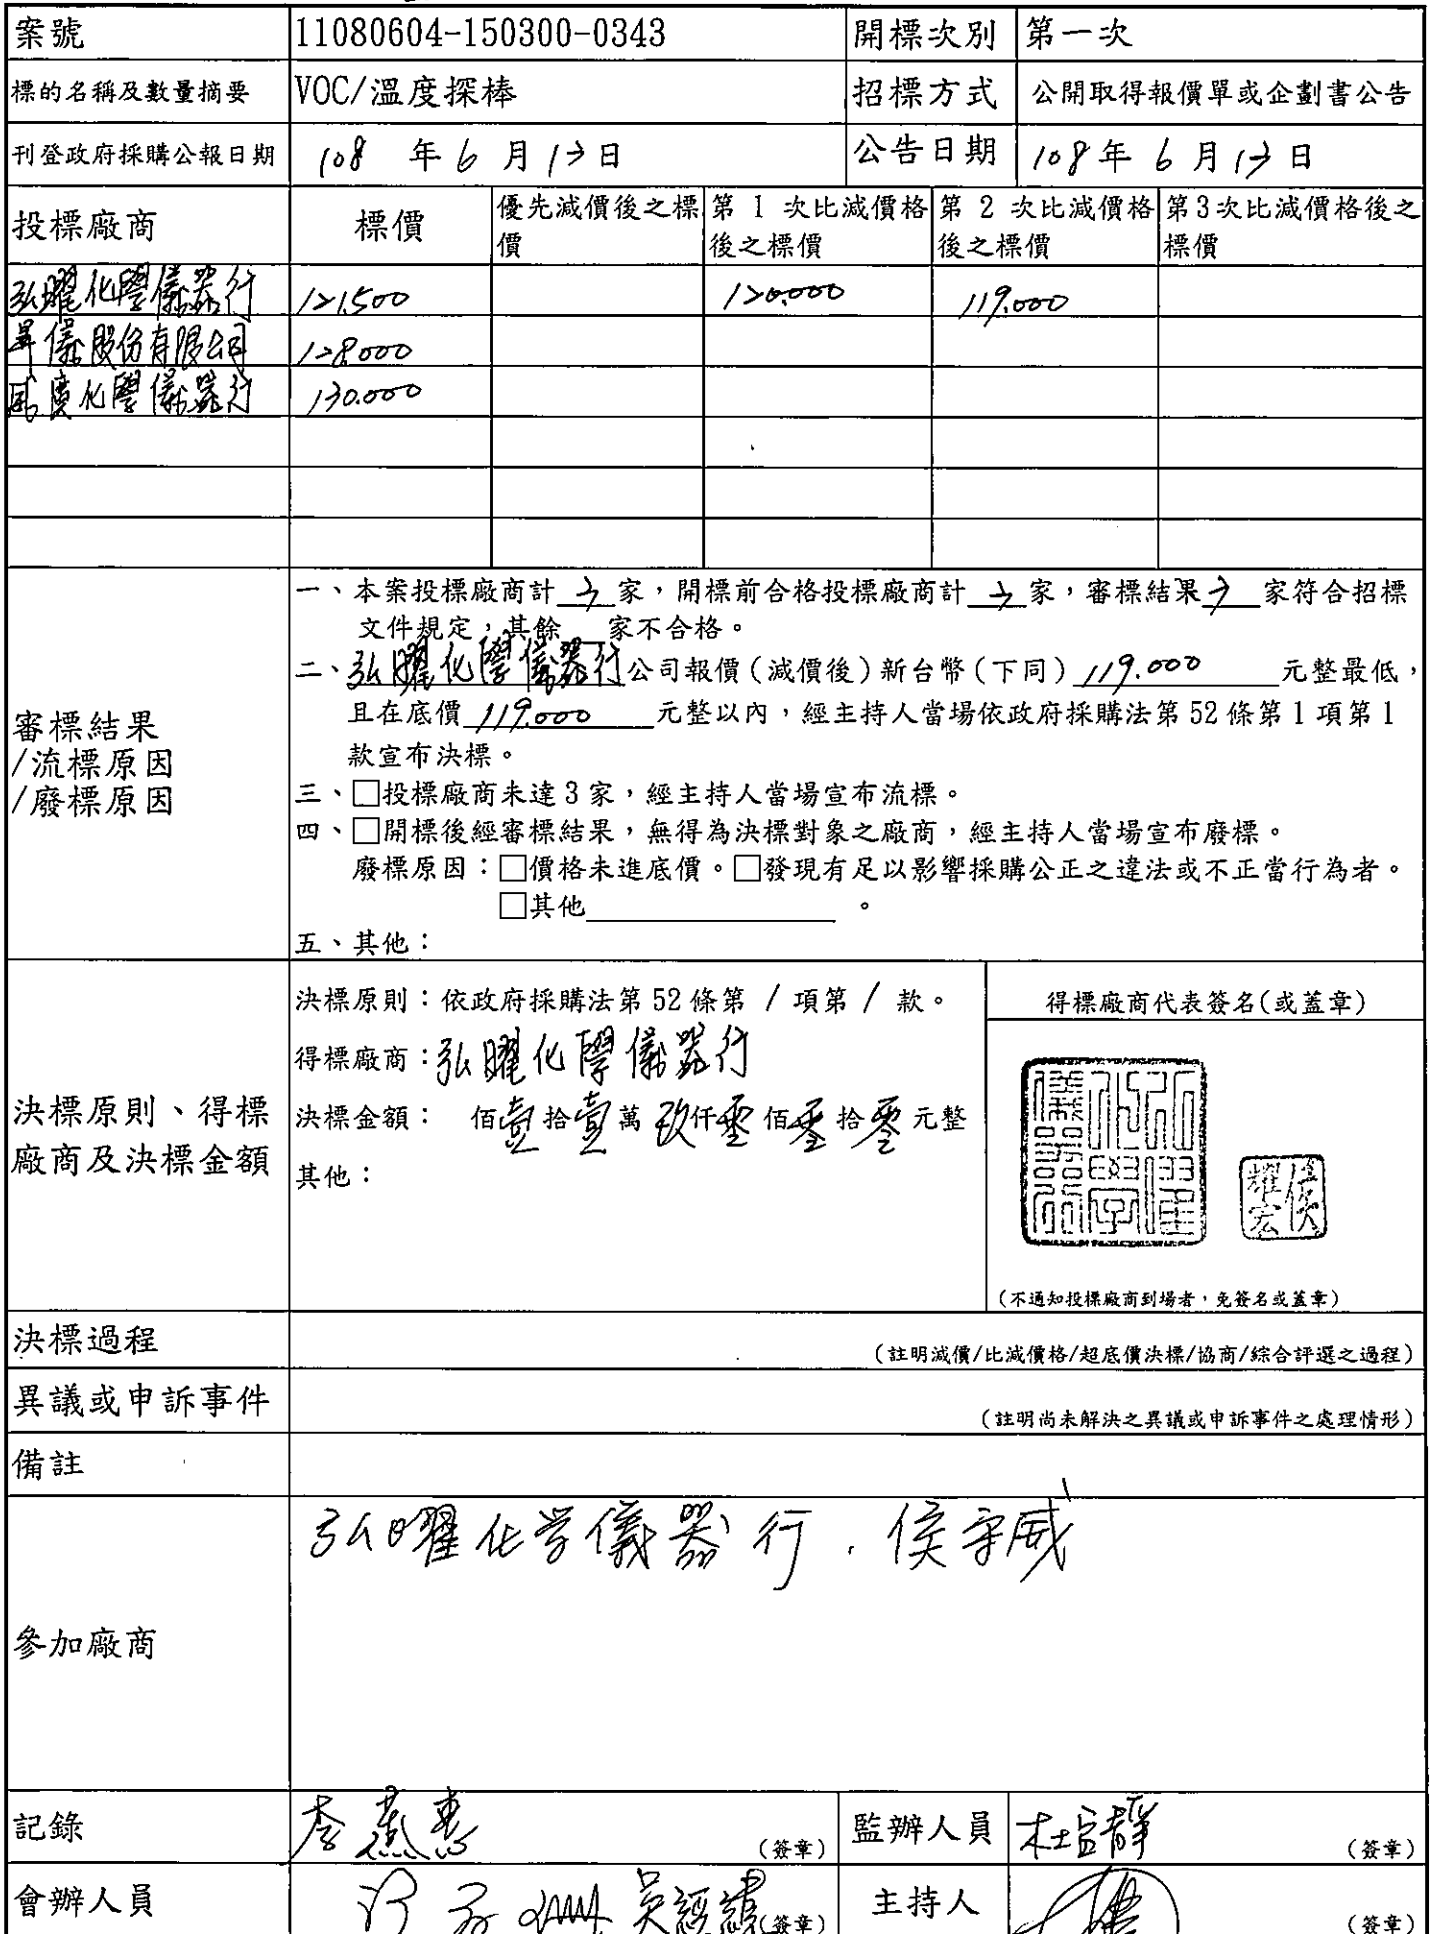 案號 11080604-150300-0343 開標次別 第一次
標的名稱及數量摘要 VOC/溫度探棒 招標方式 公開取得報價單或企劃書公告
刊登政府採購公報日期 108 年 6 月 13 日 公告日期 108 年 6 月 13 日
投標廠商 標價 優先減價後之標價 第 1 次比減價格後之標價 第 2 次比減價格後之標價 第3次比減價格後之標價
弘曜化學儀器行 121,500 120,000 119,000
昇儀股份有限公司 128,000
化學儀器行 130,000
審標結果
/流標原因
/廢標原因
一、本案投標廠商計 3 家，開標前合格投標廠商計 3 家，審標結果 3 家符合招標
文件規定，其餘 家不合格。
二、弘曜化學儀器行公司報價(減價後)新台幣(下同) 119,000 元整最低，
且在底價 119,000 元整以內，經主持人當場依政府採購法第 52 條第 1 項第 1
款宣布決標。
三、□投標廠商未達 3 家，經主持人當場宣布流標。
四、□開標後經審標結果，無得為決標對象之廠商，經主持人當場宣布廢標。
廢標原因：□價格未進底價。□發現有足以影響採購公正之違法或不正當行為者。
□其他 。
五、其他：
決標原則、得標
廠商及決標金額
決標原則：依政府採購法第 52 條第 1 項第 1 款。
得標廠商：弘曜化學儀器行
決標金額： 佰壹拾壹萬玖仟零佰零拾零元整
其他：
得標廠商代表簽名(或蓋章)
弘曜化學儀器行
侯耀宏
(不通知投標廠商到場者，免簽名或蓋章)
決標過程 (註明減價/比減價格/超底價決標/協商/綜合評選之過程)
異議或申訴事件 (註明尚未解決之異議或申訴事件之處理情形)
備註
參加廠商 弘曜化学儀器行．侯守威
記錄 李燕惠 (簽章) 監辦人員 (簽章)
會辦人員 (簽章) 主持人 (簽章)